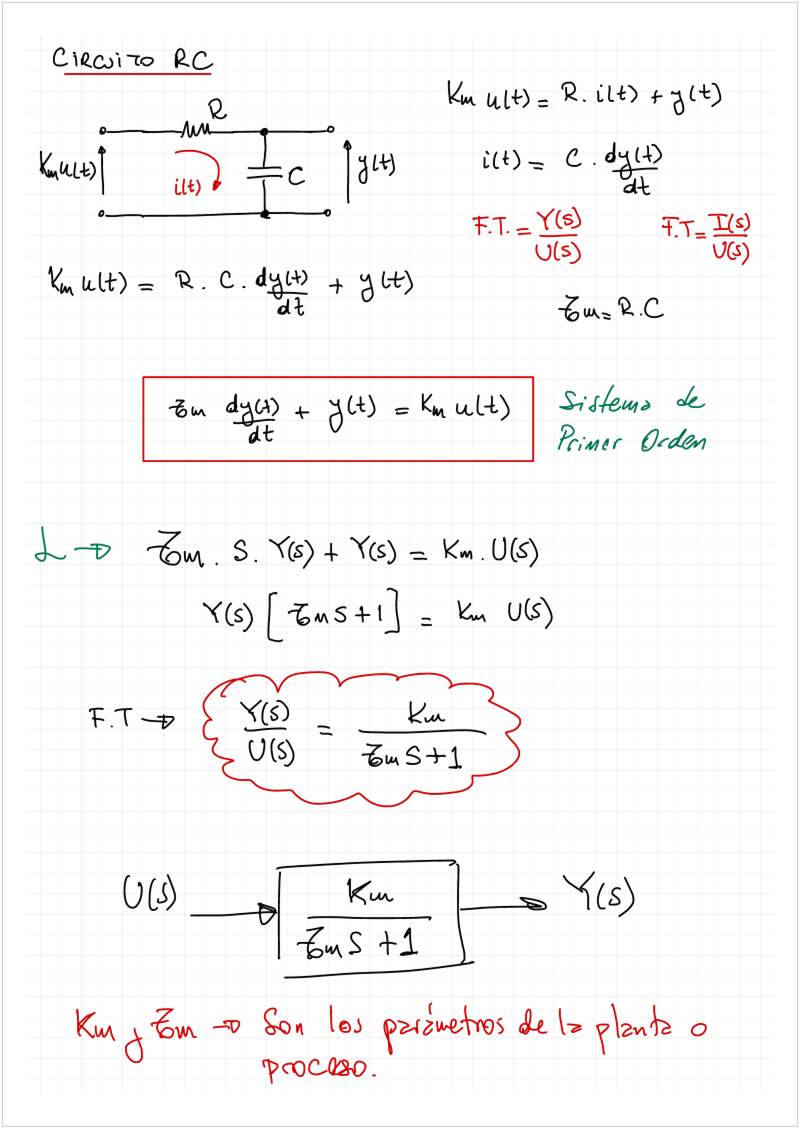 CIRCUITO RC
Km u(t) = R. i(t) + y(t)
R
Km u(t)
i(t)
C
y(t)
i(t) = C . dy(t)/dt
F.T. = Y(s)/U(s)
F.T = I(s)/U(s)
Km u(t) = R . C . dy(t)/dt + y(t)
τm = R.C
τm dy(t)/dt + y(t) = Km u(t)
Sistema de
Primer Orden
L → τm . S. Y(s) + Y(s) = Km . U(s)
Y(s) [τm S + 1] = Km U(s)
F.T → Y(s)/U(s) = Km/τm S + 1
U(s)
Km/τm S + 1
Y(s)
Km y τm → Son los parámetros de la planta o
proceso.